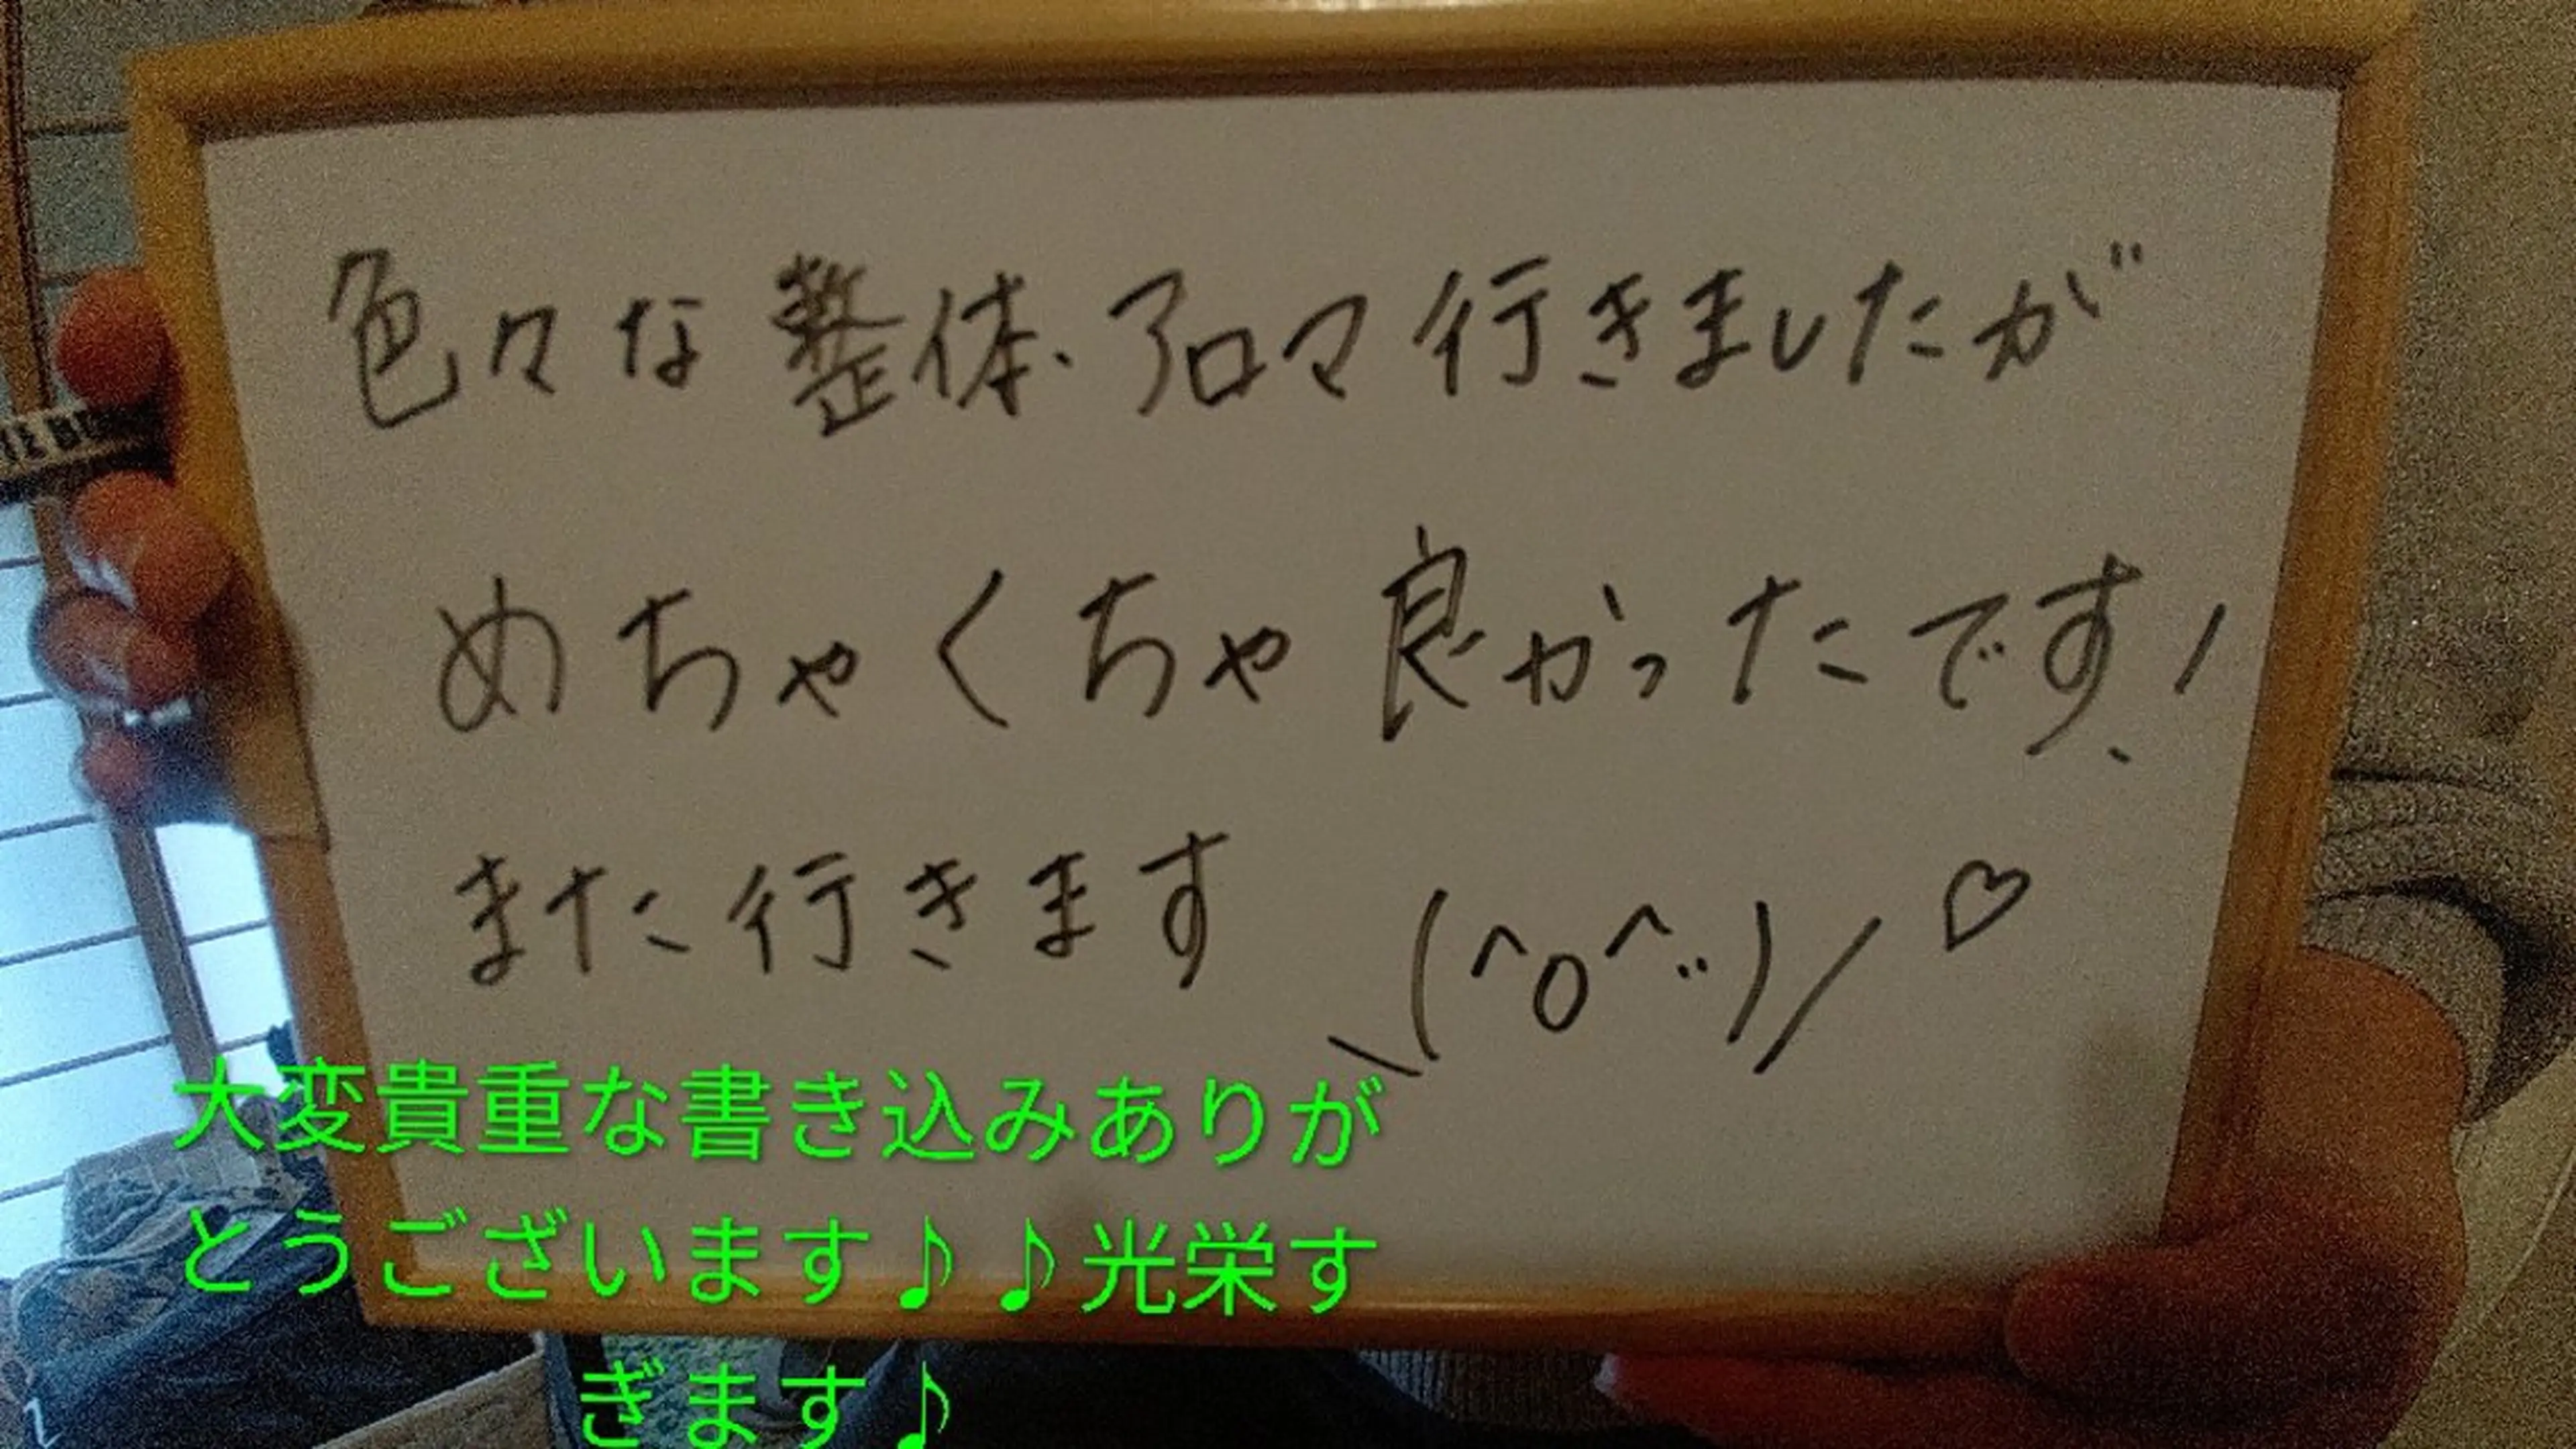 色々な整体、アロマ行きましたが
めちゃくちゃ良かったです!
また行きます \(^o^)/♡
大変貴重な書き込みありが
とうございます♪♪光栄す
ぎます♪